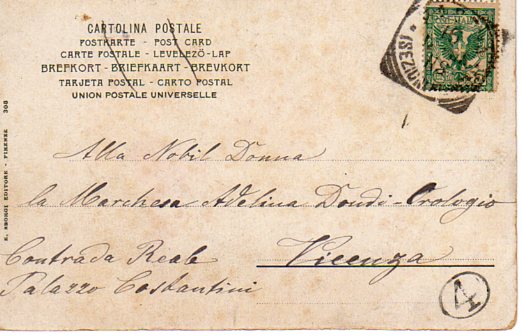 CARTOLINA POSTALE
POSTKARTE - POST CARD
CARTE POSTALE - LEVELEZŐ-LAP
BREFKORT - BRIEFKAART - BREVKORT
TARJETA POSTAL - CARTO POSTAL
UNION POSTALE UNIVERSELLE
(SEZION
Alla Nobil Donna
la Marchesa Adelina Dondi-Orologio
Contrada Reale
Vicenza
Palazzo Costantini
4
EDITORE - FIRENZE 308